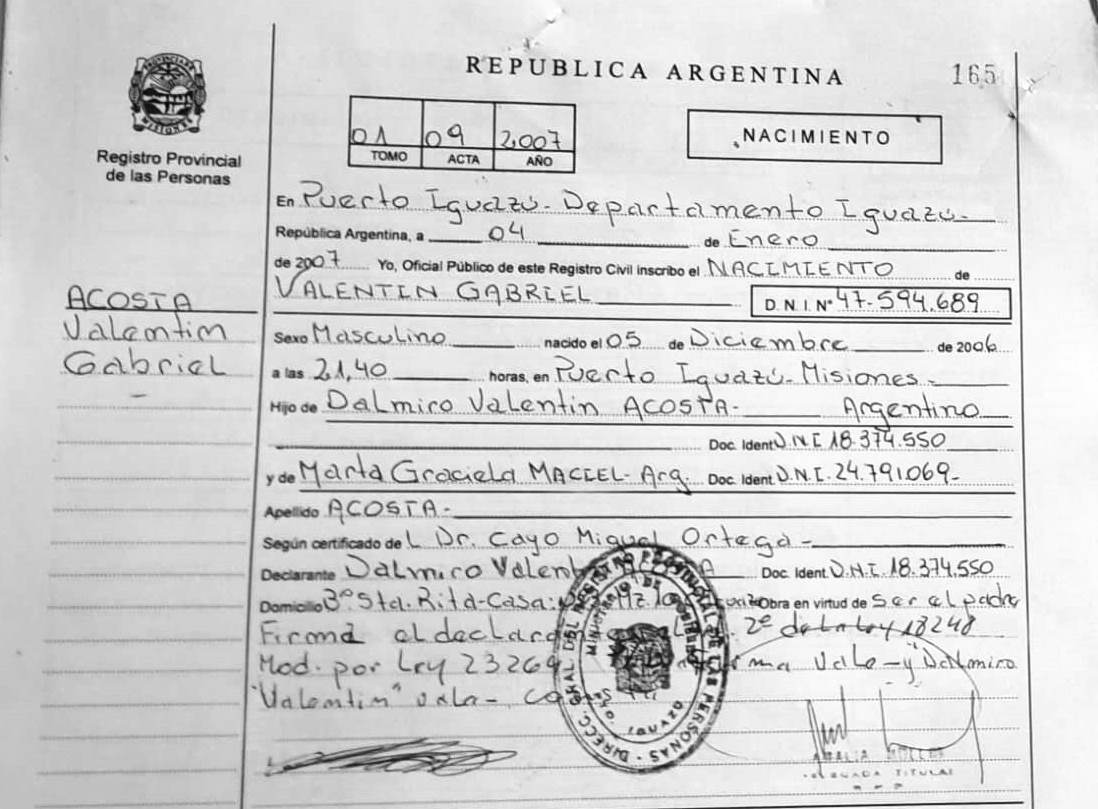 REPUBLICA ARGENTINA 165
PROVINCIA DE MISIONES
Registro Provincial
de las Personas
01 09 2007
TOMO ACTA AÑO
NACIMIENTO
En Puerto Iguazú - Departamento Iguazú -
República Argentina, a 04 de Enero
de 2007 Yo, Oficial Público de este Registro Civil inscribo el NACIMIENTO de
VALENTIN GABRIEL D.N.I. Nº 47.594.689
ACOSTA
Valentim
Gabriel
Sexo Masculino nacido el 05 de Diciembre de 2006
a las 21,40 horas, en Puerto Iguazú - Misiones -
Hijo de Dalmiro Valentin ACOSTA - Argentino
Doc. Ident D.N.I 18.374.550
y de Marta Graciela MACIEL - Arg. Doc. Ident D.N.I. 24.791.069 -
Apellido ACOSTA -
Según certificado de L Dr. Cayo Miguel Ortega -
Declarante Dalmiro Valen A Doc. Ident D.N.I. 18.374.550
Domicilio Bº Sta. Rita - Casa: Mz Obra en virtud de Ser el padre
Firma el declaran 2º de la Ley 18248
Mod. por Ley 23264 Vale - y "Dalmiro
Valentin" vale -
DIRECC. GRAL DEL REGISTRO PROVINCIAL DE LAS PERSONAS
MINISTERIO DE GOBIERNO
IGUAZU
TITULAR